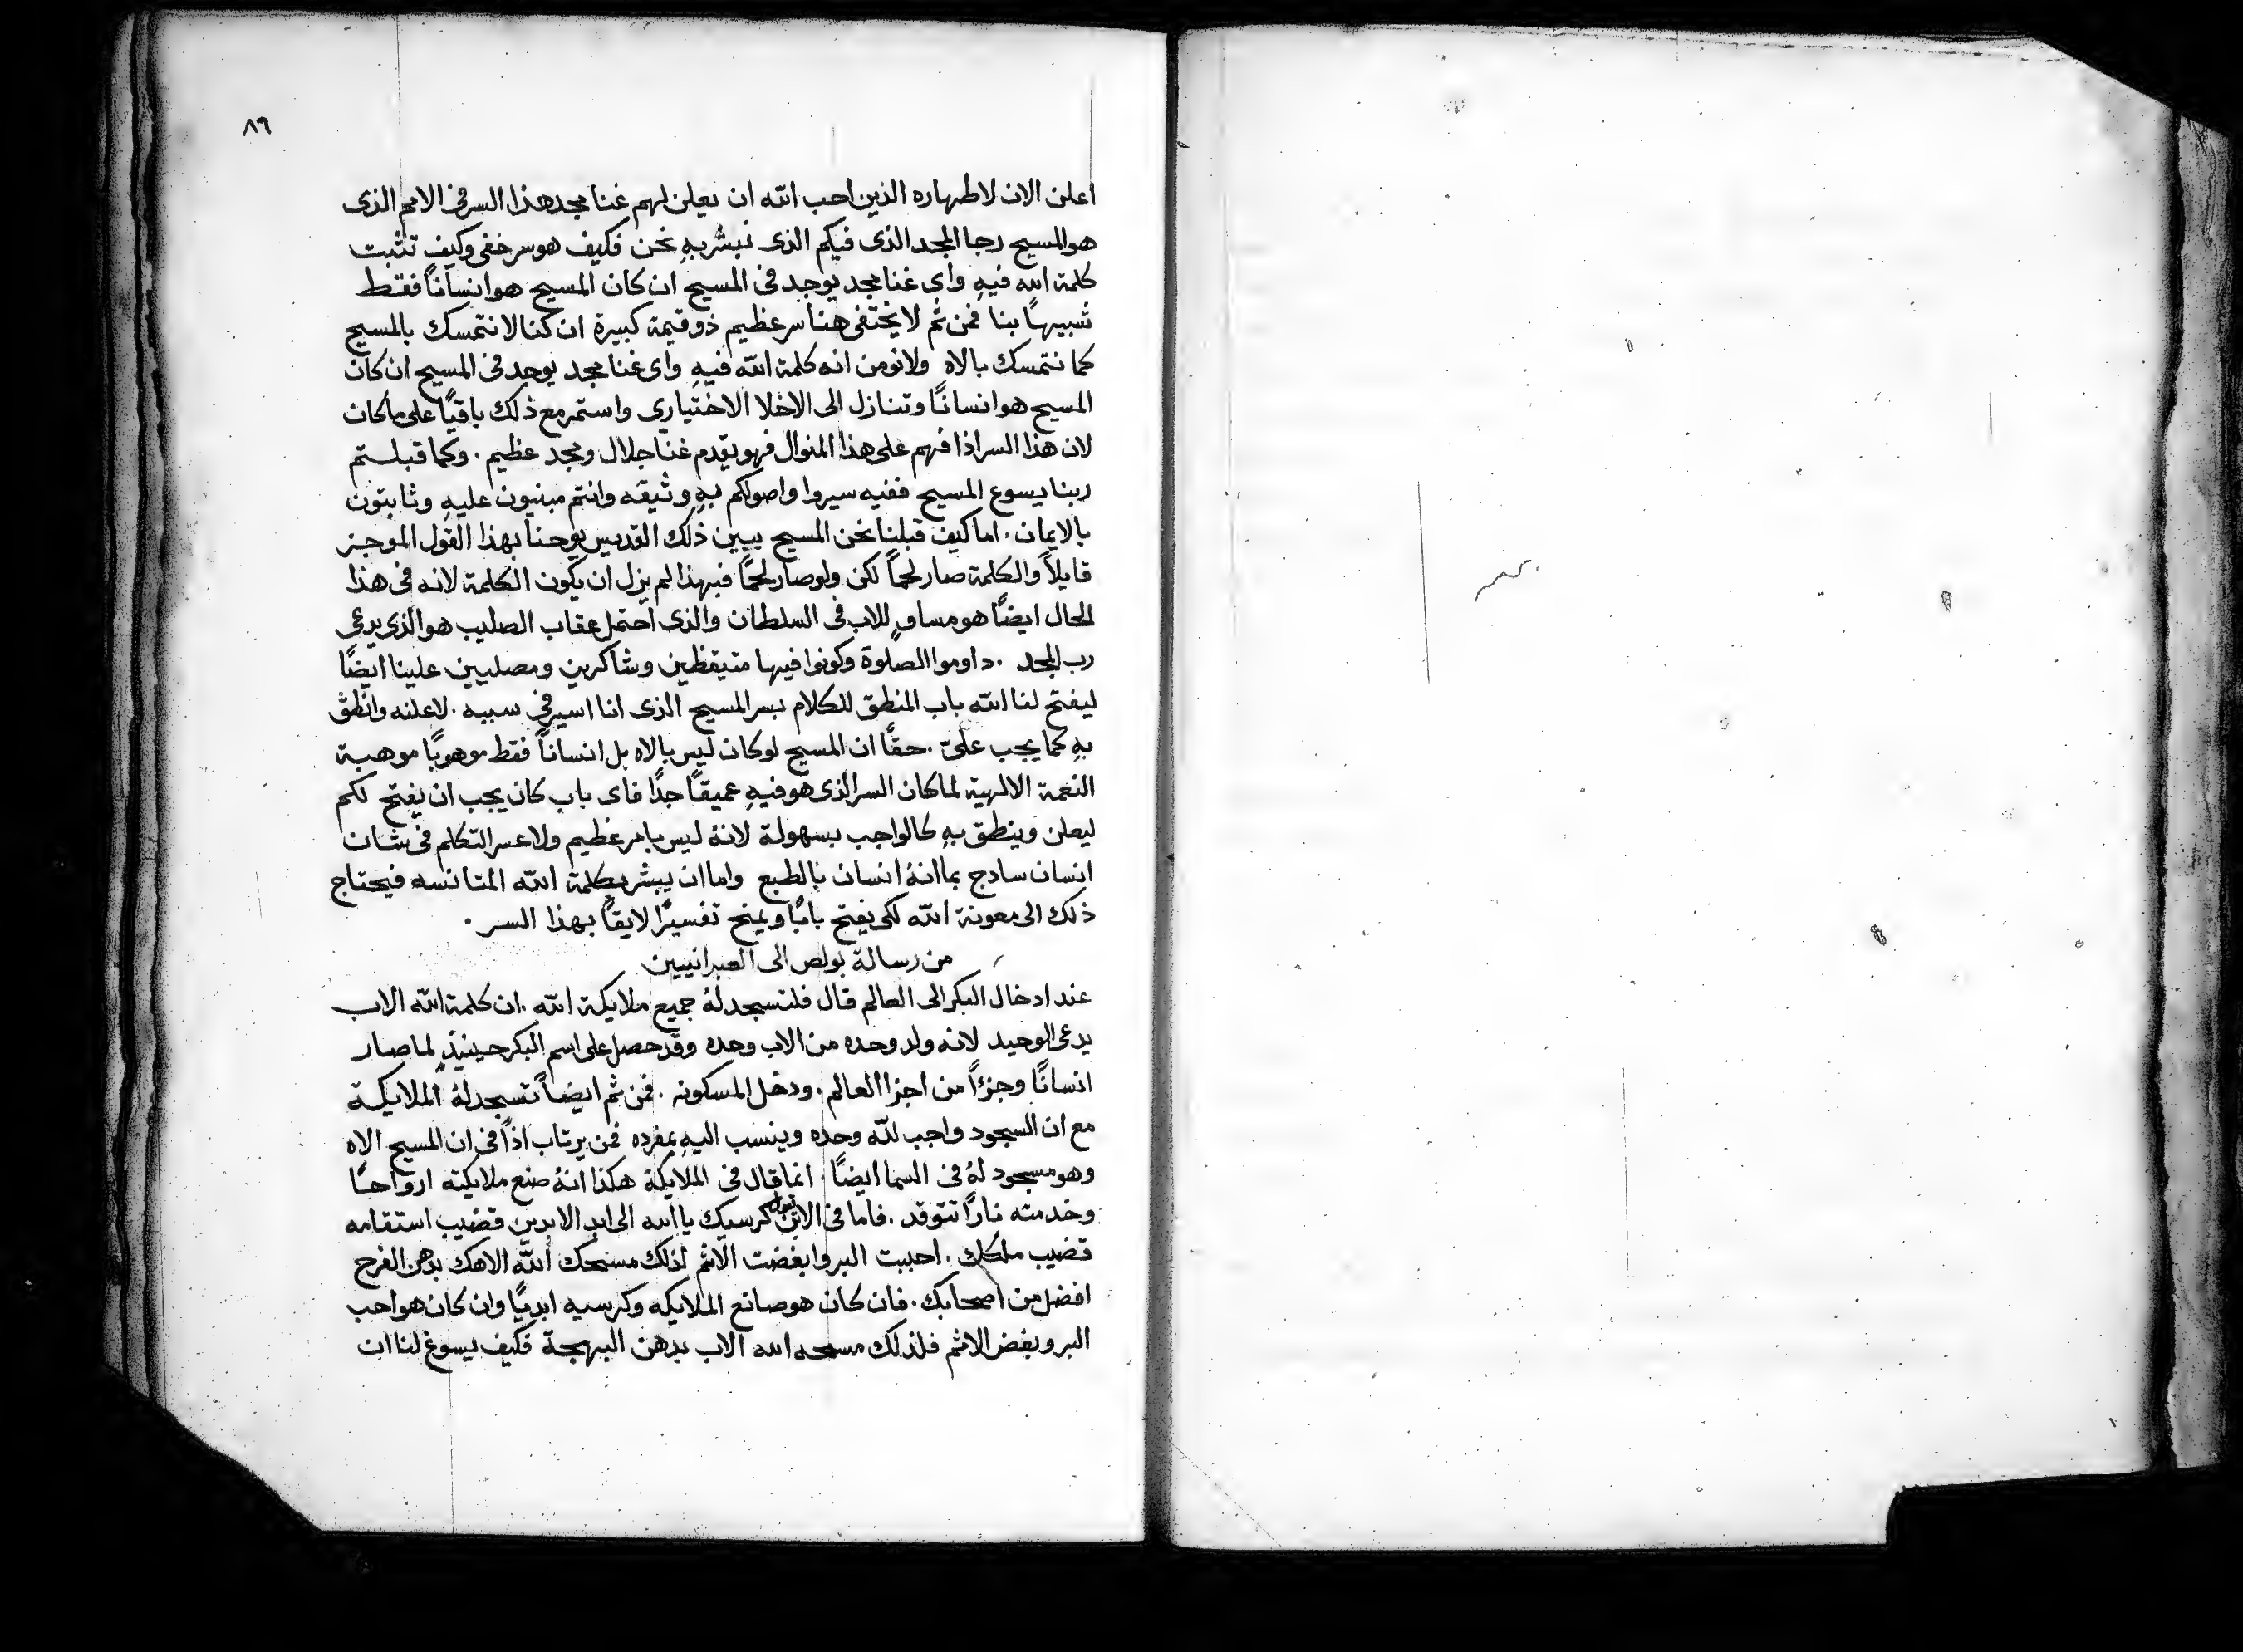 ٨٦
اعلن الان لاطهاره الذين احب الله ان يعلن لهم غنا مجد هذا السر فى الامم الذى
هو المسيح رجا المجد الذى فيكم الذى نبشر بهِ نحن فكيف هو سر خفى وكيف تثبت
كلمة الله فيهِ واى غنا مجد يوجد فى المسيح ان كان المسيح هو انساناً فقط
شبيهاً بنا فمن ثم لا يختفى هنا سر عظيم ذو قيمة كبيرة ان كنا لا نتمسك بالمسيح
كما نتمسك بالاه ولا نومن انه كلمة الله فيهِ واى غنا مجد يوجد فى المسيح ان كان
المسيح هو انسانًا وتنازل الى الاخلا الاختيارى واستمر مع ذلك باقيًا على ما كان
لان هذا السر اذا فهم على هذا المنوال فهو يقدم غنا جلال ومجد عظيم . وكما قبلستم
ربنا يسوع المسيح ففيه سيروا واصولكم بهِ وثيقه وانتم مبنيون عليهِ وثابتون
بالايمان . اما كيف قبلنا نحن المسيح يبين ذلك القديس يوحنا بهذا القول الموجز
قايلاً والكلمة صار لحماً لكن ولو صار لحمًا فبهذا لم يزل ان يكون الكلمة لانه فى هذا
الحال ايضًا هو مساوٍ للاب فى السلطان والذى احتمل عقاب الصليب هو الذى يدعى
رب المجد . داوموا الصلوة وكونوا فيها متيقظين وشاكرين ومصليين علينا ايضًا
ليفتح لنا الله باب المنطق للكلام بسر المسيح الذى انا اسير فى سببه . لاعلنه وانطق
بهِ كما يجب علىّ . حقًا ان المسيح لو كان ليس بالاه بل انساناً فقط موهوبًا موهبة
النعمة الالهية لما كان السر الذى هو فيهِ عميقًا جدًا فاى باب كان يجب ان يفتح لكم
ليعلن وينطق بهِ كالواجب بسهولة لانهُ ليس بامر عظيم ولا عسر التكلم فى شان
انسان سادج بما انهُ انسان بالطبع واما ان يبشر بكلمة الله المتانسه فيحتاج
ذلك الى معونة الله لكى يفتح بابًا ويمنح تفسيرًا لايقاً بهذا السر .
من رسالة بولص الى العبرانيين
عند ادخال البكر الى العالم قال فلتسجد لهُ جميع ملايكة الله . ان كلمة الله الاب
يدعى الوحيد لانه ولد وحده من الاب وحده وقد حصل على اسم البكر حينيذٍ لما صار
انسانًا وجزءًا من اجزا العالم . ودخل المسكونه . فمن ثم ايضاً تسجد لهُ الملايكة
مع ان السجود واجب لله وحده وينسب اليهِ بمفرده فمن يرتاب اذاً فى ان المسيح الاه
وهو مسجود لهُ فى السما ايضًا . انما قال فى الملايكة هكذا انهُ صنع ملايكته ارواحًا
وخدمته نارًا تتوقد . فاما فى الابن كرسيك يا الله الى ابد الابدين قضيب استقامه
قضيب ملكك . احببت البر وابغضت الاثم لذلك مسحك الله الاهك بدهن الفرح
افضل من اصحابك . فان كان هو صانع الملايكه وكرسيه ابديًا وان كان هو احب
البر وبغض الاثم فلذلك مسحه الله الاب بدهن البهجة فكيف يسوغ لنا ان